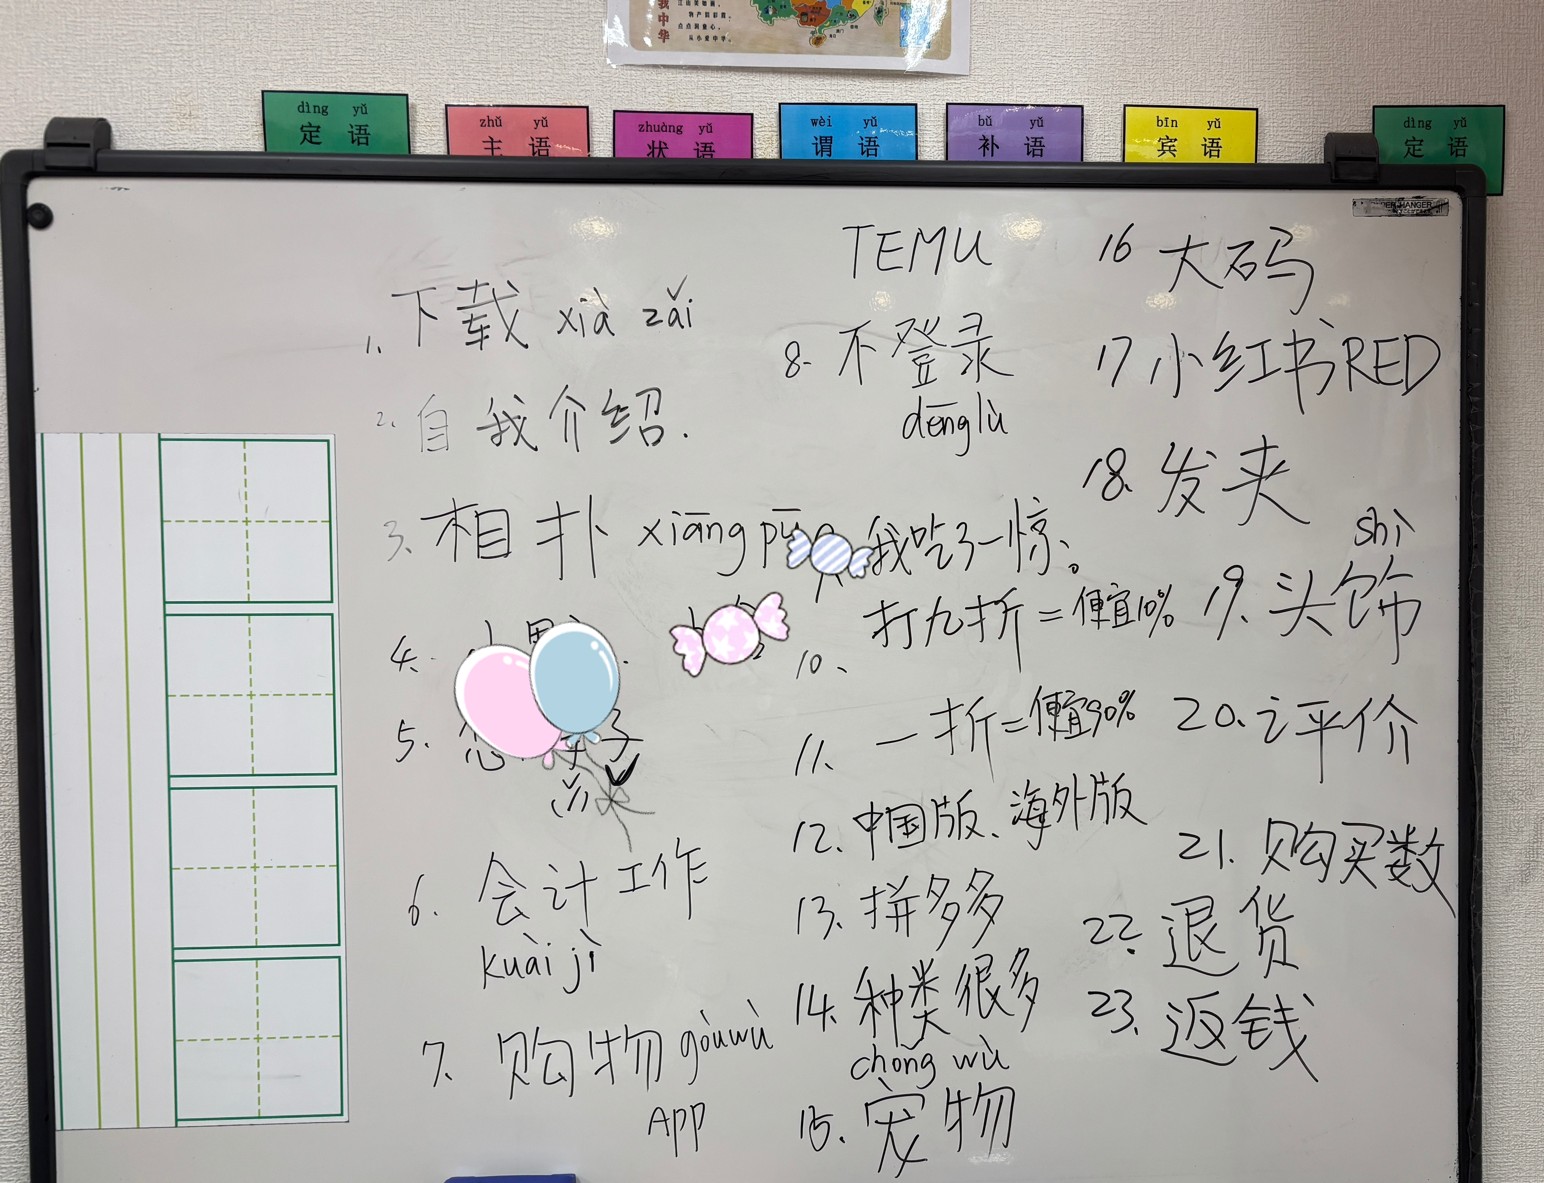 我中华
物产积彩霞。
点点润童心。
dìng yǔ
定 语
zhǔ yǔ
主 语
zhuàng yǔ
状 语
wèi yǔ
谓 语
bǔ yǔ
补 语
bīn yǔ
宾 语
dìng yǔ
定 语
1. 下载 xià zǎi
2. 自我介绍.
3. 相扑 xiāng pū
4.
5. 子
6. 会计工作
kuài jì
7. 购物 gòuwù
APP
TEMU
8. 不登录
dēnglù
我吃了一惊。
10、打九折=便宜10%
11. 一折=便宜90%
12. 中国版、海外版
13. 拼多多
14. 种类很多
chǒng wù
15. 宠物
16 大码
17 小红书RED
18. 发夹
shì
19. 头饰
20. 评价
21. 购买数
22. 退货
23. 返钱